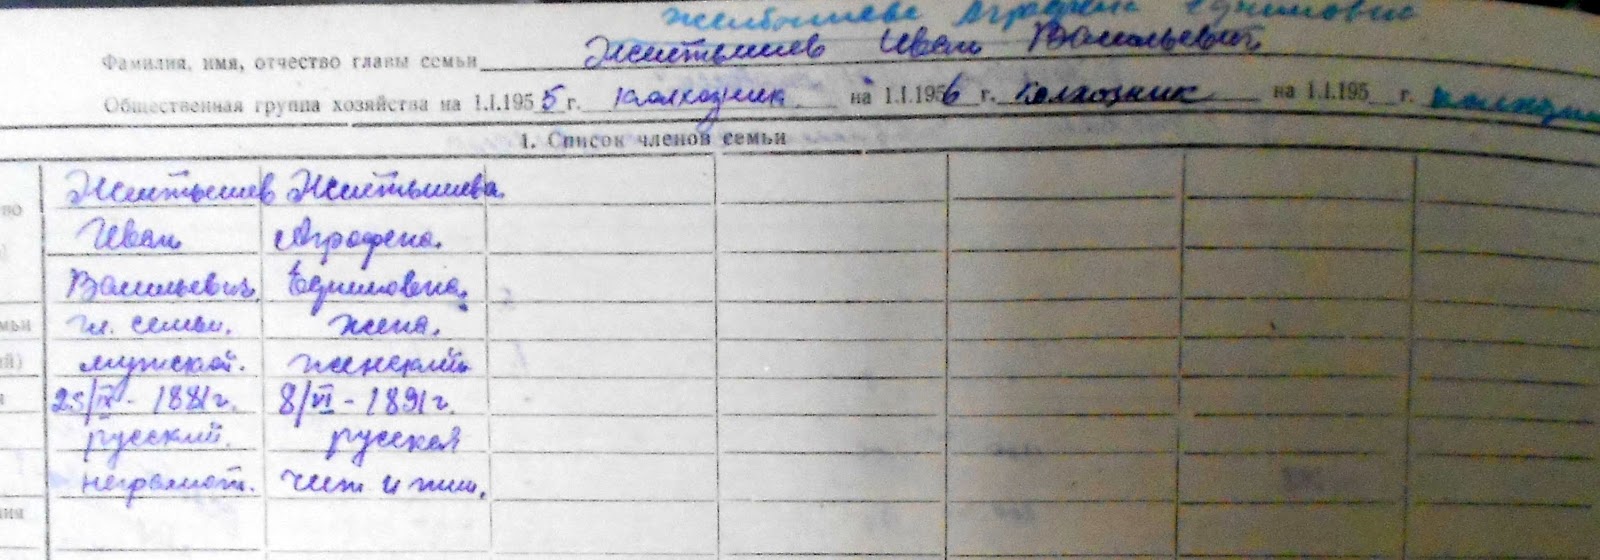 Аграфена Ефимовна
Фамилия, имя, отчество главы семьи Желтышев Иван Васильевич
Общественная группа хозяйства на 1.I.1955 г. колхозник на 1.I.1956 г. колхозник на 1.I.195 г.
1. Список членов семьи
Желтышев Желтышева.
Иван Аграфена.
Васильевич. Ефимовна.
гл. семьи. жена.
мужской. женский
25/IX - 1881г. 8/VI - 1891г.
русский. русская
неграмот. чит и пиш.